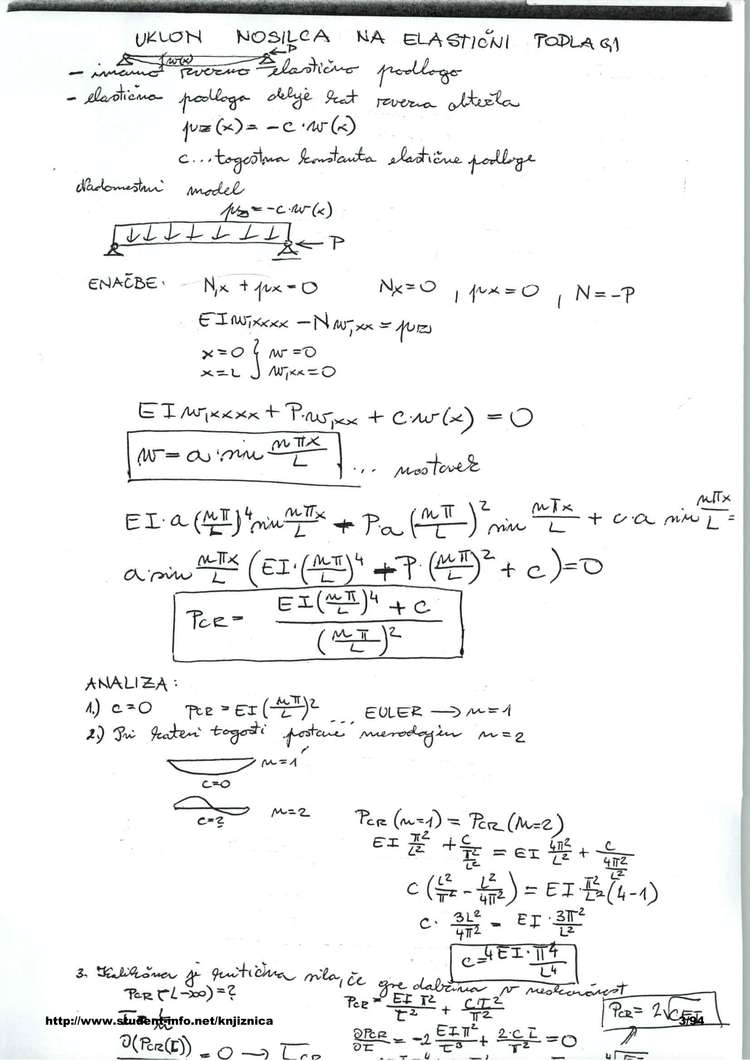 UKLON NOSILCA NA ELASTIČNI PODLAGI
w(x) P
- imamo ravno elastično podlogo
- elastična podloga deluje kot ravna obtežba
pz(x) = -c·w(x)
c...togostna konstanta elastične podloge
Nadomestni model
pz = -c·w(x)
P
ENAČBE: N,x + px = 0 Nx = 0 , px = 0 , N = -P
EIw,xxxx - Nw,xx = pz
x=0 } w=0
x=L } w,xx=0
EIw,xxxx + P·w,xx + c·w(x) = 0
w = a·sin nπx/L ... nastavek
EI·a (nπ/L)^4 sin nπx/L + P·a (nπ/L)^2 sin nπx/L + c·a sin nπx/L =
a·sin nπx/L (EI·(nπ/L)^4 + P·(nπ/L)^2 + c) = 0
PCR = (EI(nπ/L)^4 + c) / (nπ/L)^2
ANALIZA:
1.) c=0 PCR = EI(nπ/L)^2 ... EULER → n=1
2.) Pri kateri togosti postane merodajen n=2
n=1
c=0
n=2
c=?
PCR(n=1) = PCR(n=2)
EI π²/L² + c/(π²/L²) = EI 4π²/L² + c/(4π²/L²)
c(L²/π² - L²/4π²) = EI·π²/L²(4-1)
c· 3L²/4π² = EI· 3π²/L²
c = 4EI·π^4/L^4
3. Kolikšna je kritična sila, če gre dolžina v neskončnost
PCR(L→∞)=?
PCR = EIπ²/L² + CL²/π²
PCR = 2√CEI
http://www.student-info.net/knjiznica
3/94